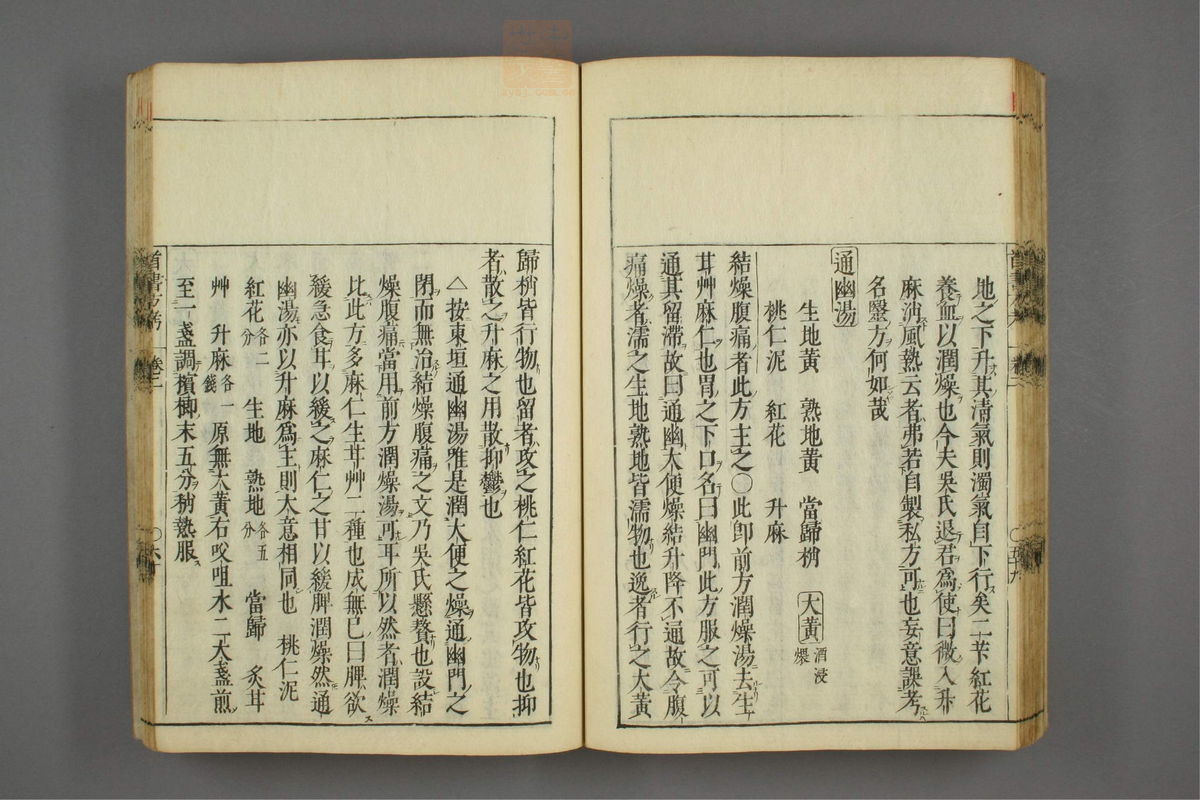 地之下升其清氣則濁氣自下行矣二芐紅花
養血以潤燥也今夫吳氏退君為使曰微入升
麻消風熱云者弗若自製私方可也妄意誤考
名毉方何如哉
通幽湯
生地黃 熟地黃 當歸梢 大黃 酒浸煨
桃仁泥 紅花 升麻
結燥腹痛者此方主之○此即前方潤燥湯去生
甘艸麻仁也胃之下口名曰幽門此方服之可以
通其留滯故曰通幽大便燥結升降不通故令腹
痛燥者濡之生地熟地皆濡物也逸者行之大黃
歸梢皆行物也留者攻之桃仁紅花皆攻物也抑
者散之升麻之用散抑鬱也
△按東垣通幽湯雖是潤大便之燥通幽門之
閉而無治結燥腹痛之文乃吳氏懸贅也設結
燥腹痛當用前方潤燥湯可耳所以然者潤燥
比此方多麻仁生甘艸二種也成無已曰脾欲
緩急食甘以緩之麻仁之甘以緩脾潤燥然通
幽湯亦以升麻為主則大意相同也 桃仁泥
紅花各二分 生地 熟地各五分 當歸 炙甘
艸 升麻各一錢 原無大黃右㕮咀水二大盞煎
至一盞調檳榔末五分稍熱服